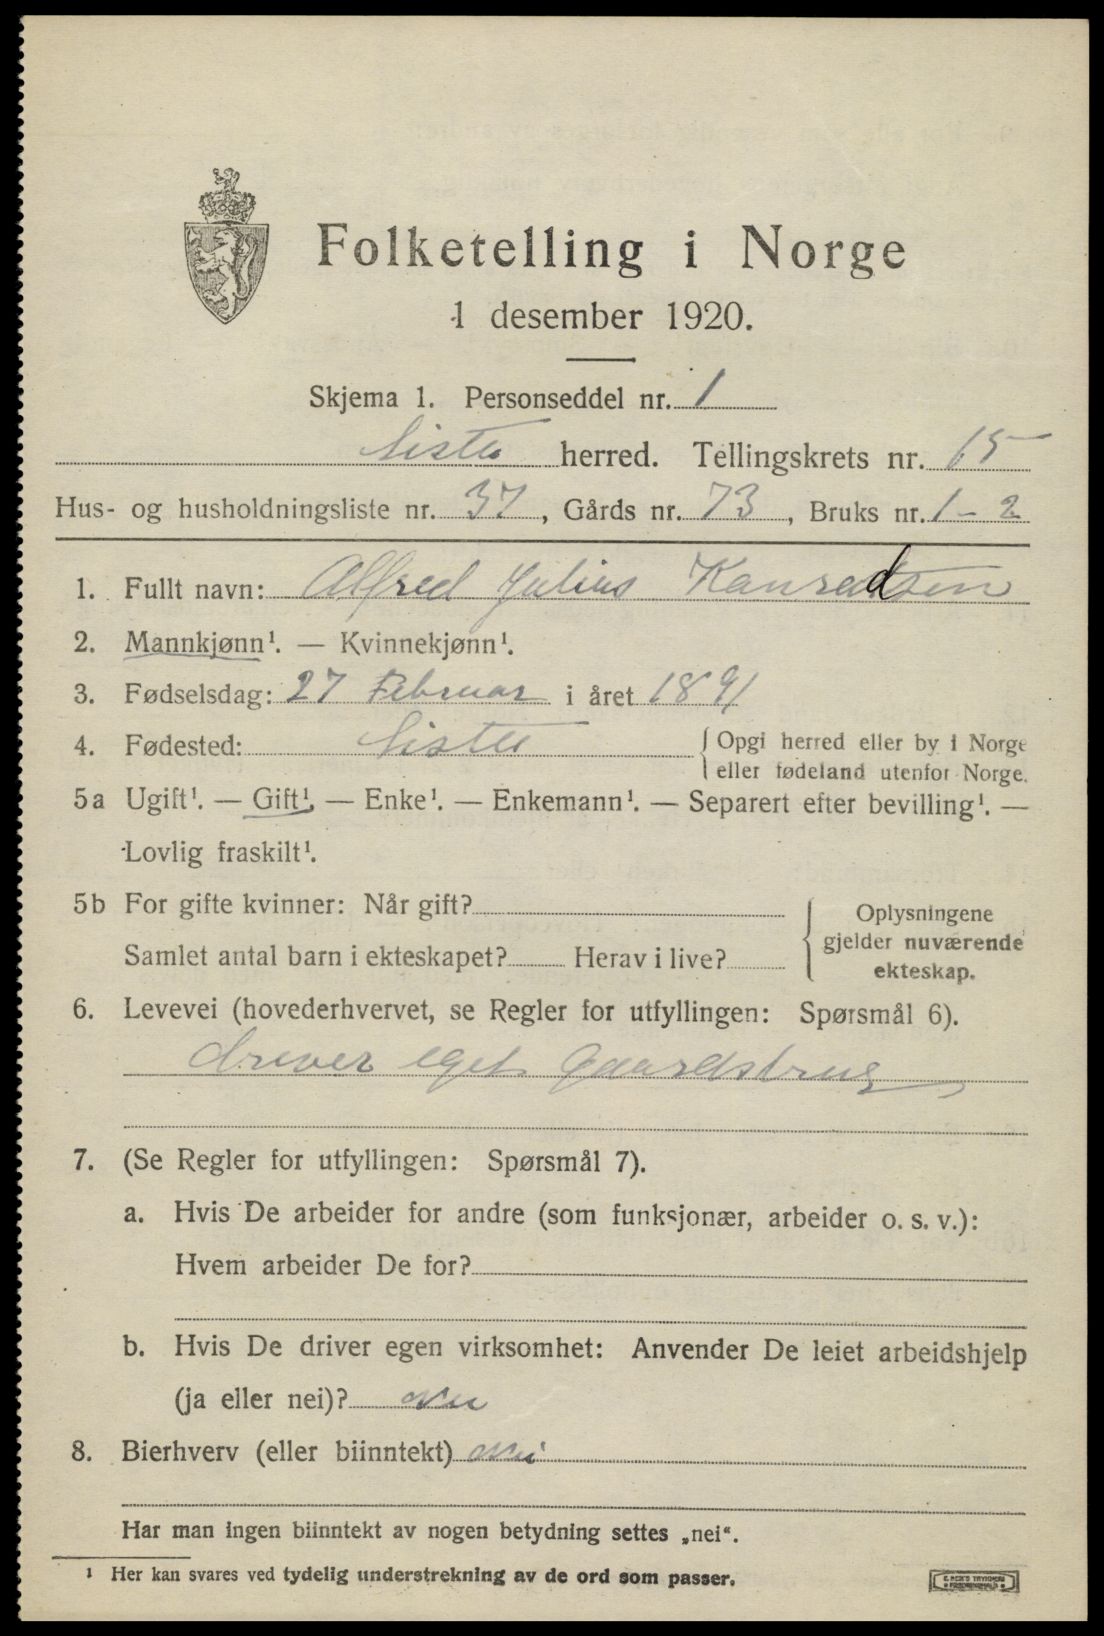 Folketelling i Norge
1 desember 1920.
Skjema 1. Personseddel nr. 1
Lista herred. Tellingskrets nr. 15
Hus- og husholdningsliste nr. 37, Gårds nr. 73, Bruks nr. 1-2
1. Fullt navn: Alfred Julius Kanradsen
2. Mannkjønn¹. — Kvinnekjønn¹.
3. Fødselsdag: 27 Februar i året 1891
4. Fødested: Lista { Opgi herred eller by i Norge
eller fødeland utenfor Norge.
5a Ugift¹. — Gift¹, — Enke¹. — Enkemann¹. — Separert efter bevilling¹. —
Lovlig fraskilt¹.
5b For gifte kvinner: Når gift?
Samlet antal barn i ekteskapet? Herav i live?
{ Oplysningene
gjelder nuværende
ekteskap.
6. Levevei (hovederhvervet, se Regler for utfyllingen: Spørsmål 6).
driver eget Gaardsbrug
7. (Se Regler for utfyllingen: Spørsmål 7).
a. Hvis De arbeider for andre (som funksjonær, arbeider o. s. v.):
Hvem arbeider De for?
b. Hvis De driver egen virksomhet: Anvender De leiet arbeidshjelp
(ja eller nei)? Nei
8. Bierhverv (eller biinntekt) Nei
Har man ingen biinntekt av nogen betydning settes „nei“.
¹ Her kan svares ved tydelig understrekning av de ord som passer.